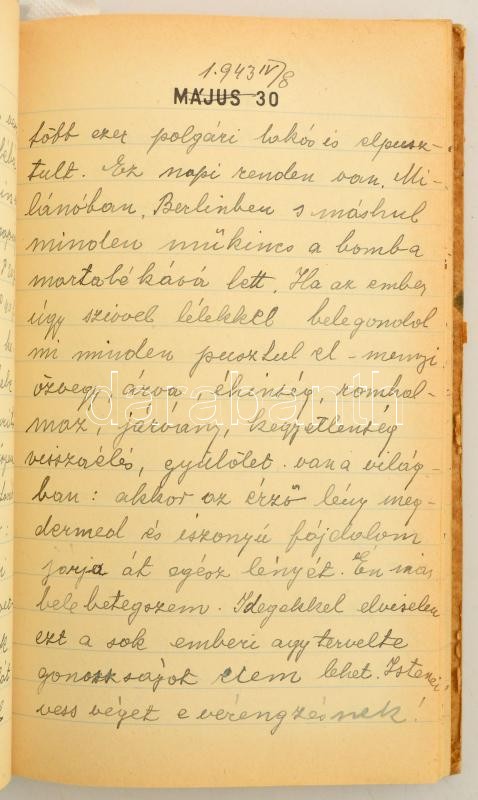 1.943 IV/8
MÁJUS 30
több ezer polgári lakós is elpusz-
tult. Ez napi renden van. Mi-
lánóban, Berlinben s máshul
minden műkincs a bomba
martalékává lett. Ha az ember
úgy szivvel lélekkel belegondol
mi minden pusztul el - mennyi
özvegy, árva, éhinség, romhal-
maz, járvány, kegyetlenség
visszaélés, gyülölet van a világ-
ban: akkor az érző lény meg-
dermed és iszonyú fájdalom
járja át egész lényét. Én már
bele betegszem. Idegekkel elviselen
ezt a sok emberi agy tervelte
gonoszságot nem lehet. Istenem
vess véget e vérengzésnek!
darabanth